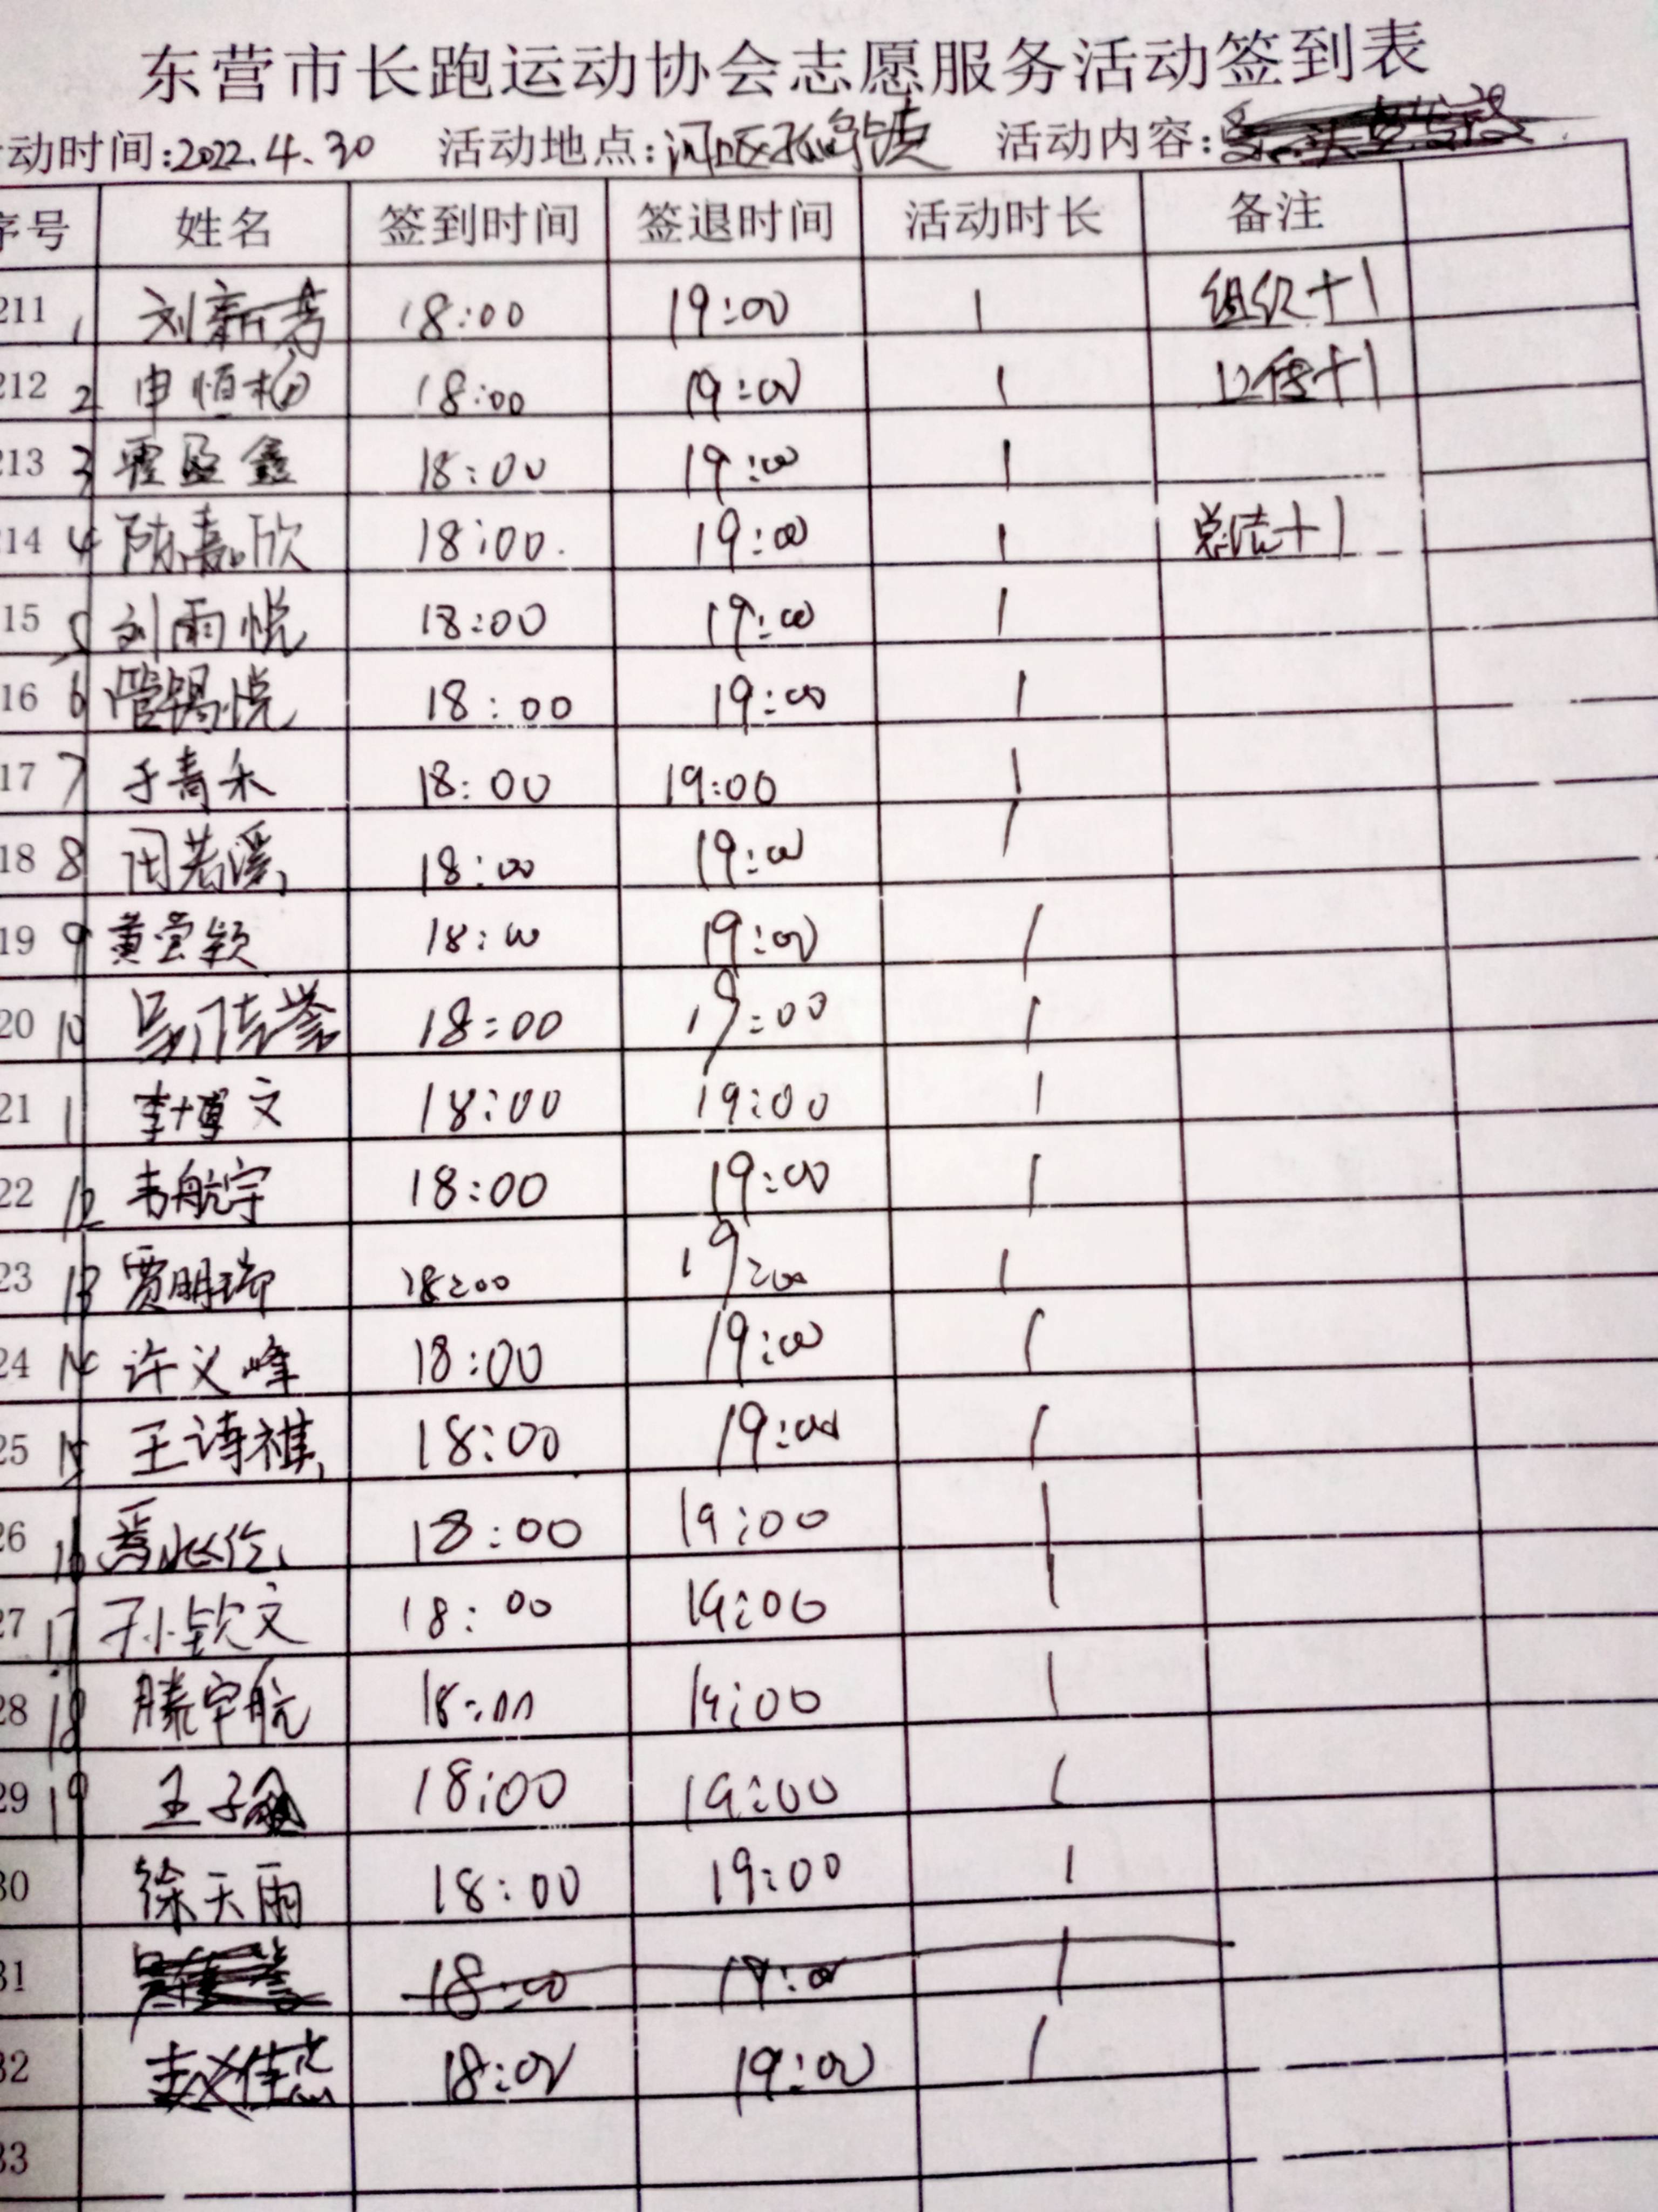 东营市长跑运动协会志愿服务活动签到表
动时间:2022.4.30 活动地点:河口区孤岛镇 活动内容:
序号 姓名 签到时间 签退时间 活动时长 备注
211 1 刘新芳 18:00 19:00 1 组织+1
212 2 申恒柏 18:00 19:00 1 宣传+1
213 3 霍盈鑫 18:00 19:00 1
214 4 陈嘉欣 18:00 19:00 1 总结+1
15 5 刘雨悦 18:00 19:00 1
16 6 管锡悦 18:00 19:00 1
17 7 于青禾 18:00 19:00 1
18 8 田若溪 18:00 19:00 1
19 9 黄莹颖 18:00 19:00 1
20 10 18:00 19:00 1
21 11 李博文 18:00 19:00 1
22 12 韦航宇 18:00 19:00 1
23 13 贾明瑞 18:00 19:00 1
24 14 许义峰 18:00 19:00 1
25 15 王诗祺 18:00 19:00 1
26 16 18:00 19:00 1
27 17 孙钦文 18:00 19:00 1
28 18 滕宇航 18:00 19:00 1
29 19 王子 18:00 19:00 1
30 徐天雨 18:00 19:00 1
31 18:00 19:00 1
32 赵佳 18:00 19:00 1
33